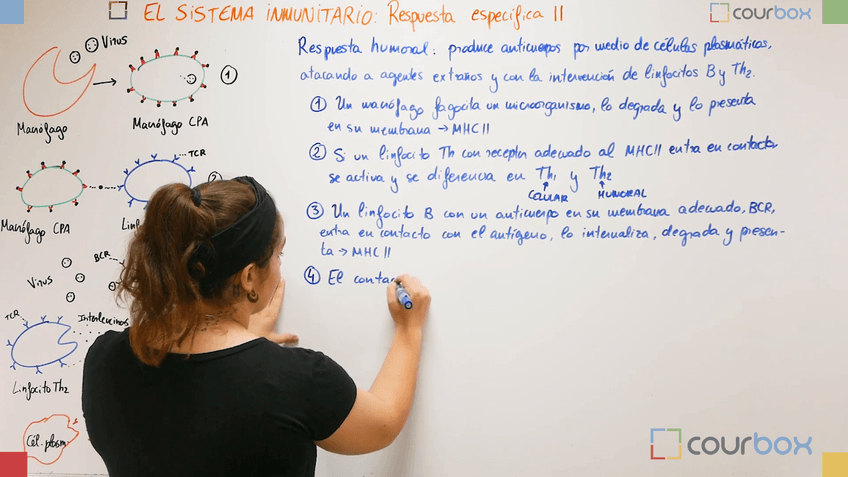 EL SISTEMA INMUNITARIO: Respuesta específica II
courbox
Virus
1
Macrófago
Macrófago CPA
TCR
2
Macrófago CPA
Linf
BCR
Virus
TCR
Interleucinas
Linfocito Th2
Cél. plasm
Respuesta humoral: produce anticuerpos por medio de células plasmáticas,
atacando a agentes extraños y con la intervención de linfocitos B y Th2.
1 Un macrófago fagocita un microorganismo, lo degrada y lo presenta
en su membrana → MHC II
2 Si un linfocito Th con receptor adecuado al MHC II entra en contacto
se activa y se diferencia en Th1 y Th2
CELULAR HUMORAL
3 Un linfocito B con un anticuerpo en su membrana adecuado, BCR,
entra en contacto con el antígeno, lo internaliza, degrada y presen-
ta → MHC II
4 El conta
courbox